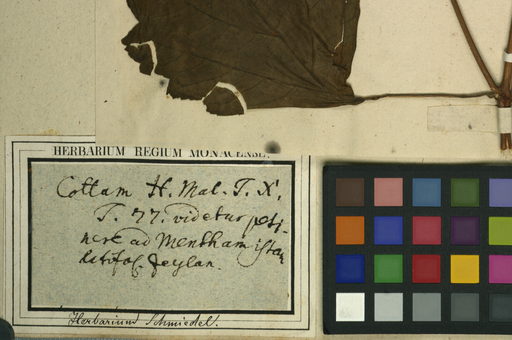 HERBARIUM REGIUM MONACENSE.
Cottam H. Mal. T. X,
T. 77. videtur perti-
nere ad Mentham istam
Zeylan.
Herbarium Schmiedel.